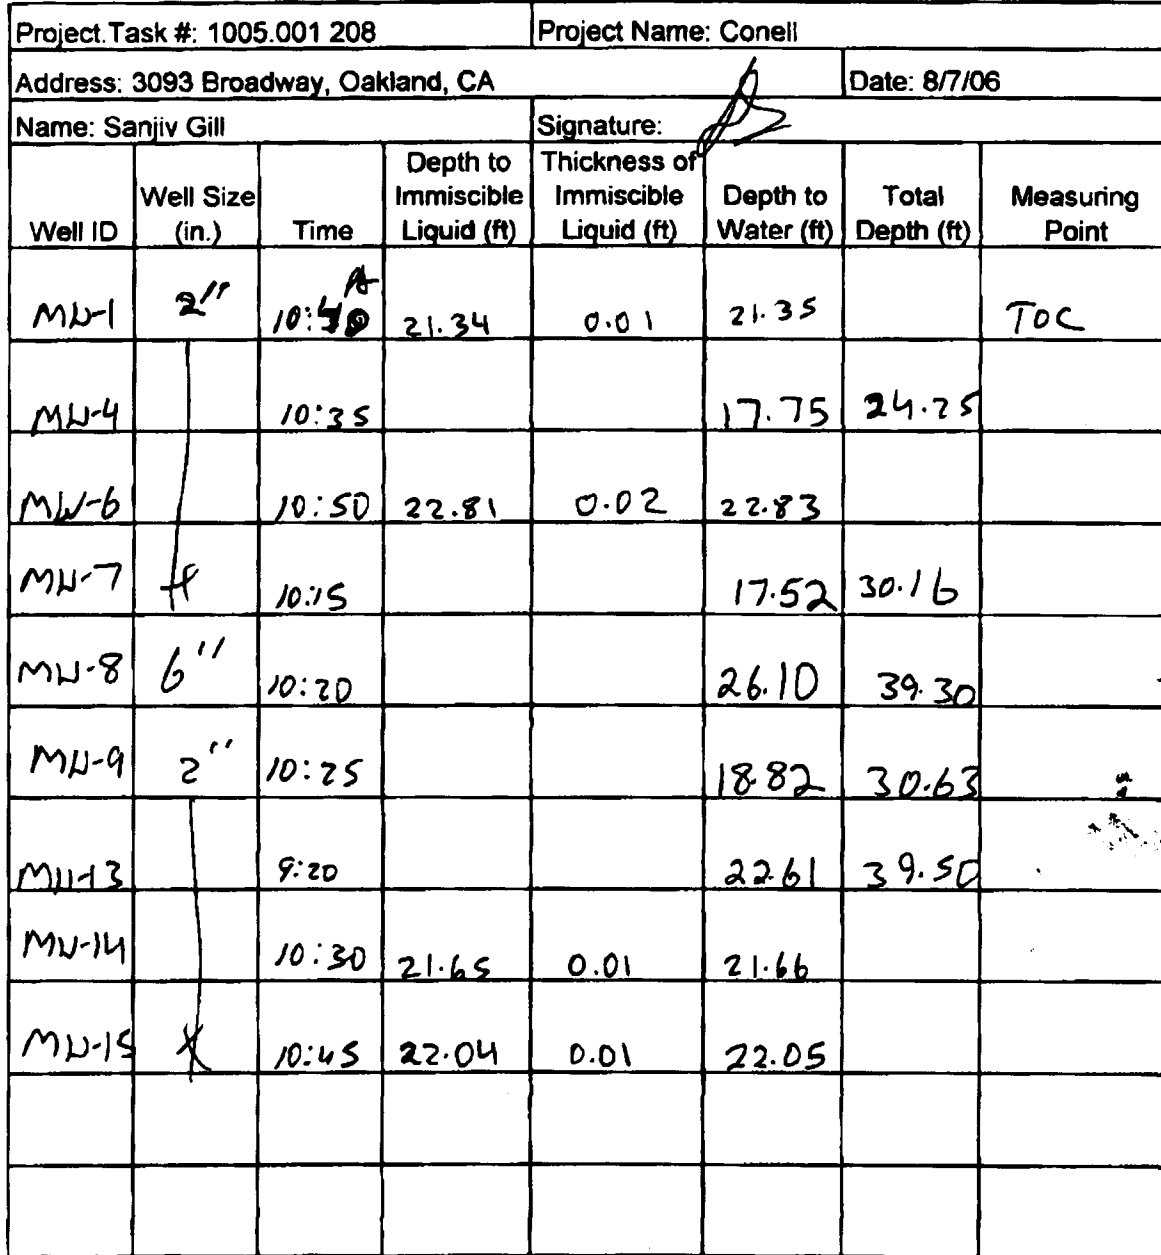 Project.Task #: 1005.001 208 Project Name: Conell
Address: 3093 Broadway, Oakland, CA Date: 8/7/06
Name: Sanjiv Gill Signature:
Well ID Well Size (in.) Time Depth to Immiscible Liquid (ft) Thickness of Immiscible Liquid (ft) Depth to Water (ft) Total Depth (ft) Measuring Point
MW-1 2" 10:40 21.34 0.01 21.35 TOC
MW-4 10:35 17.75 24.25
MW-6 10:50 22.81 0.02 22.83
MW-7 10:15 17.52 30.16
MW-8 6" 10:20 26.10 39.30
MW-9 2" 10:25 18.82 30.63
MW-13 9:20 22.61 39.50
MW-14 10:30 21.65 0.01 21.66
MW-15 10:45 22.04 0.01 22.05